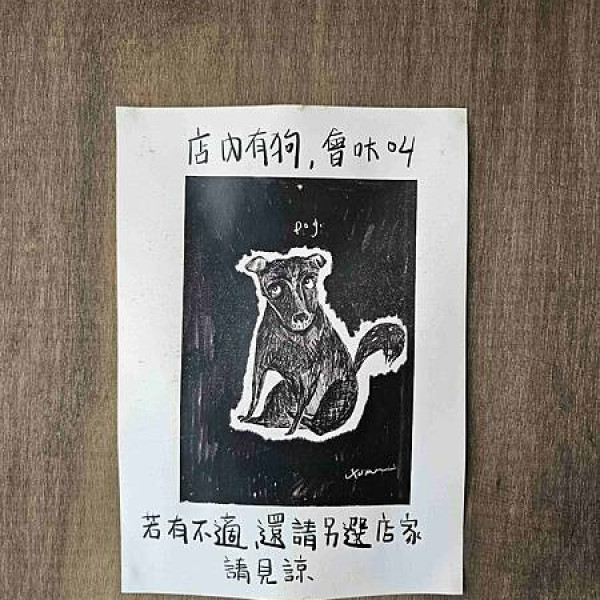 店內有狗,會咊叫
pogi
若有不適,還請另選店家
請見諒